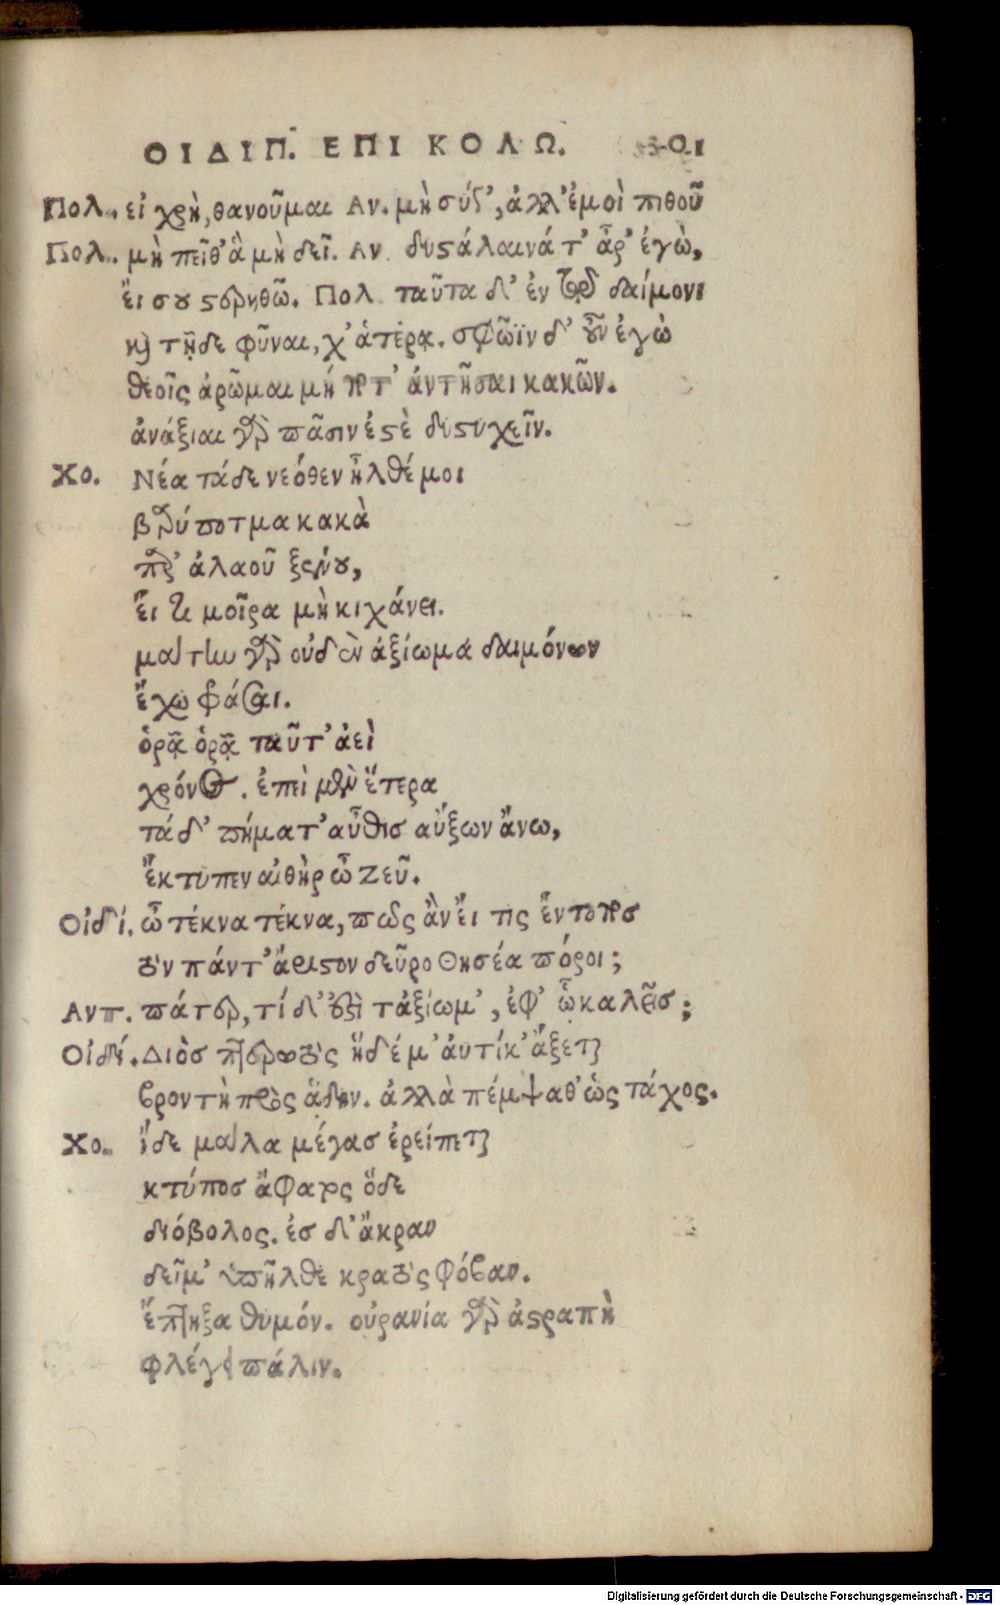 ΟΙΔΙΠ. ΕΠΙ ΚΟΛΩ.
Πολ. εἰ χρὴ, θανοῦμαι Αν. μὴ σύ γ', ἀλλ' ἐμοὶ πιθοῦ
Πολ. μὴ πεῖθ' ἃ μὴ δεῖ. Αν. δυστάλαινά τ' ἆρ' ἐγὼ,
εἴ σου στερηθῶ. Πολ. ταῦτα δ' ἐν τῷ δαίμονι
καὶ τῇδε φῦναι, χ' ἀτέρᾳ. σφῶϊν δ' οὖν ἐγὼ
θεοῖς ἀρῶμαι μή ποτ' ἀντῆσαι κακῶν.
ἀνάξιαι γὰρ πᾶσιν ἐστὲ δυστυχεῖν.
Χο. Νέα τάδε νεόθεν ἦλθέ μοι
βαρύποτμα κακὰ
παρ' ἀλαοῦ ξένου,
εἴ τι μοῖρα μὴ κιχάνει.
μάτην γὰρ οὐδὲν ἀξίωμα δαιμόνων
ἔχω φάσαι.
ὁρᾷ ὁρᾷ ταῦτ' ἀεὶ
χρόνος. ἐπεὶ μὲν ἕτερα
τάδ' πήματ' αὖθισ αὔξων ἄνω,
ἔκτυπεν αἰθὴρ ὦ Ζεῦ.
Οἰδί. ὦ τέκνα τέκνα, πῶς ἂν εἴ τις ἔντοπος
τὸν πάντ' ἄριστον δεῦρο Θησέα πόροι;
Αντ. πάτερ, τί δ' ἐστὶ τἀξίωμ', ἐφ' ᾧ καλεῖσ;
Οἰδί. Διὸσ πτερωτὸς ἥδε μ' ἀυτίκ' ἄξεται
βροντὴ πρὸς ἅδην. ἀλλὰ πέμψαθ' ὡς τάχος.
Χο. ἴδε μάλα μέγασ ἐρείπεται
κτύποσ ἄφατος ὅδε
διόβολος. ἐσ δ' ἄκραν
δεῖμ' ὑπῆλθε κρατὸς φόβαν.
ἔπτηξα θυμόν. οὐρανία γὰρ ἀστραπὴ
φλέγει πάλιν.
Digitalisierung gefördert durch die Deutsche Forschungsgemeinschaft - DFG